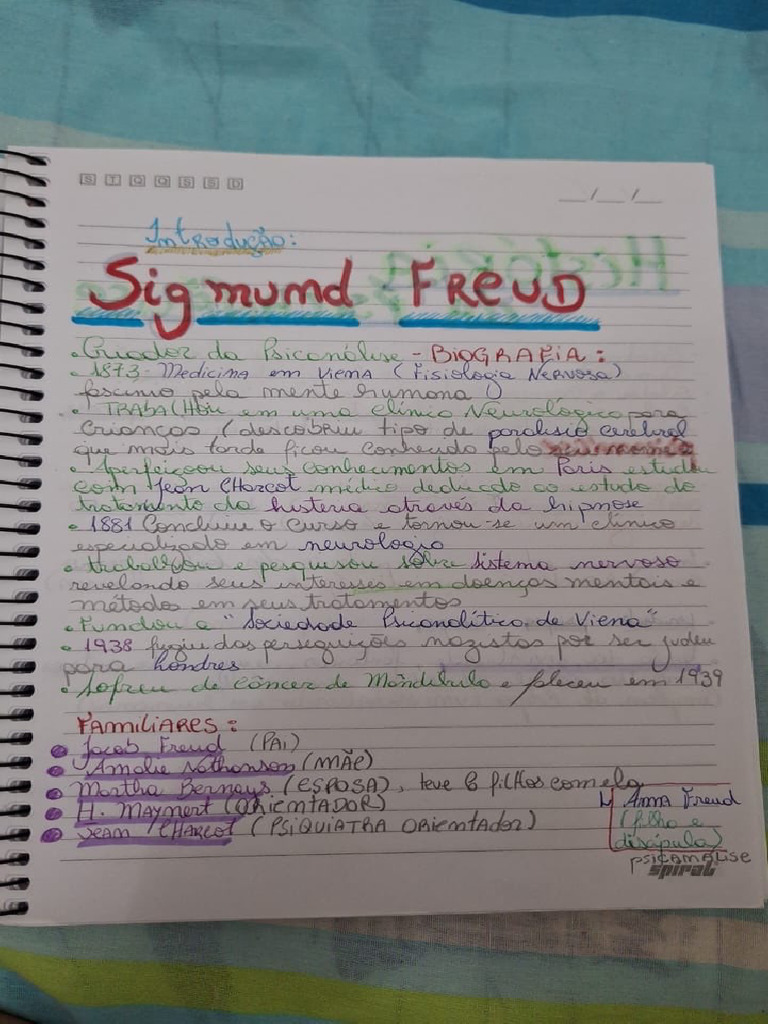 S T Q Q S S D
__/__/__
Introdução:
Sigmumd FREUD
• Criador da Psicanálise - BIOGRAFIA:
• 1873 - Medicina em Viena (Fisiologia Nervosa)
fascinio pela mente humana
• TRABALHou em uma clínica Neurológica para
crianças (descobriu tipo de paralisia cerebral
que mais tarde ficou conhecida pelo
• Aperfeiçoou seus conhecimentos em Paris estudou
com Jean CHarcot médico dedicado ao estudo do
tratamento da histeria através da hipnose
• 1881 Concluiu o curso e tornou-se um clínico
especializado em neurologia
• trabalhou e pesquisou sobre sistema nervoso
revelando seus interesses em doenças mentais e
métodos em seus tratamentos
• Fundou a "Sociedade Psicanalítica de Viena"
• 1938 fugiu das perseguições nazistas por ser judeu
para Londres
• Sofreu de câncer de Mandíbula e faleceu em 1939
FAMILIARES:
• Jacob Freud (PAI)
• Amalie Nathanson (MÃE)
• Martha Bernays (ESPOSA), teve 6 filhos com ela
• H. Maynert (ORIEMTADOR)
↳ Anna Freud
• Jeam CHARcot (PSIQUIATRA ORIEMTADOR)
(filha e
discípula)
psicamalise
spiral